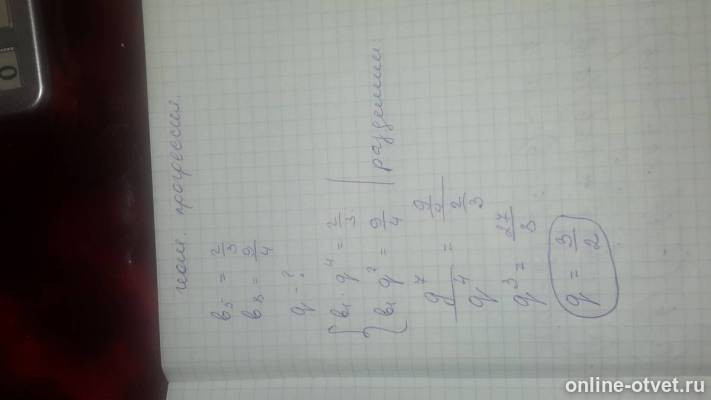 геом. прогрессия.
b5 = 2/3
b8 = 9/4
q - ?
{ b1 · q^4 = 2/3
{ b1 q^7 = 9/4 | разделим
q^7/q^4 = 9/4 / 2/3
q^3 = 27/8
q = 3/2
0
online-otvet.ru